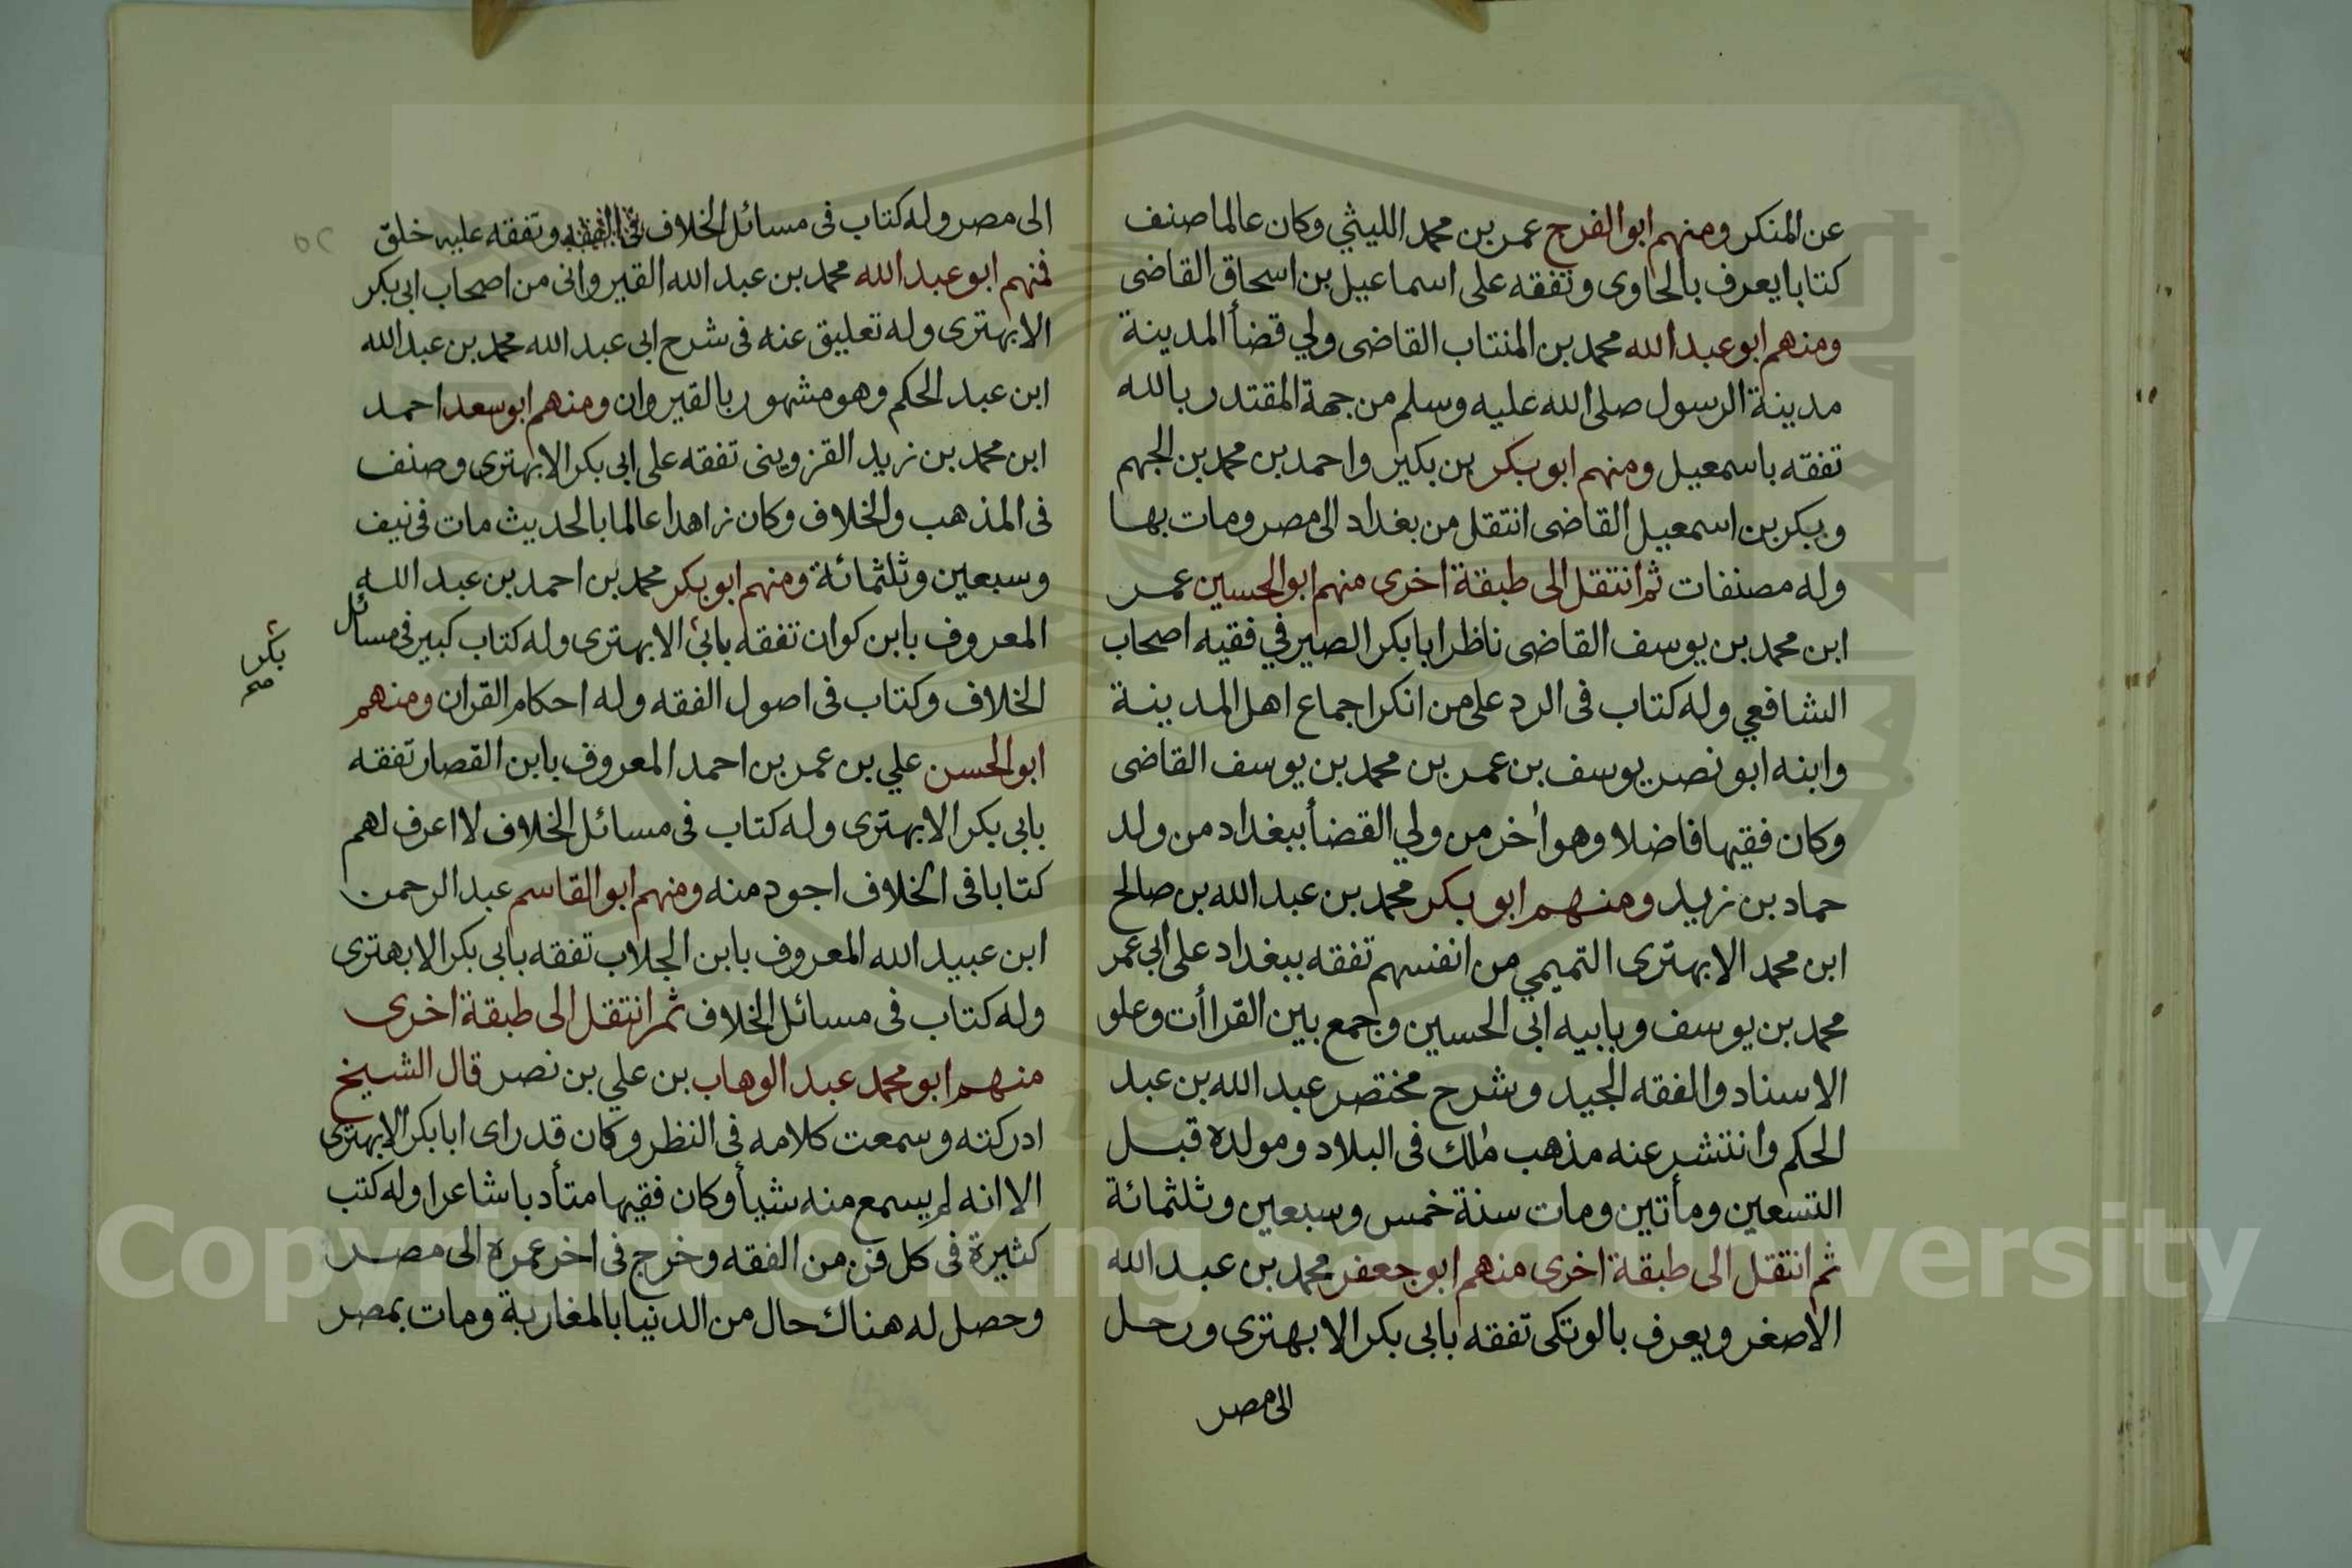 عن المنكر ومنهم ابو الفرج عمر بن محمد الليثي وكان عالما صنف
كتابا يعرف بالحاوى وتفقه على اسماعيل بن اسحاق القاضى
ومنهم ابو عبد الله محمد بن المنتاب القاضى ولي قضأ المدينة
مدينة الرسول صلى الله عليه وسلم من جهة المقتدر بالله
تفقه باسمعيل ومنهم ابو بكر بن بكير واحمد بن محمد بن الجهم
وبكر بن اسمعيل القاضى انتقل من بغداد الى مصر ومات بها
وله مصنفات ثم انتقل الى طبقة اخرى منهم ابو الحسين عمر
ابن محمد بن يوسف القاضى ناظر ابا بكر الصيرفي فقيه اصحاب
الشافعي وله كتاب فى الرد على من انكر اجماع اهل المدينة
وابنه ابو نصر يوسف بن عمر بن محمد بن يوسف القاضى
وكان فقيها فاضلا وهو اخر من ولي القضأ ببغداد من ولد
حماد بن زيد ومنهم ابو بكر محمد بن عبد الله بن صالح
ابن محمد الابهترى التميمي من انفسهم تفقه ببغداد على ابي عمر
محمد بن يوسف وبابيه ابى الحسين وجمع بين القراأت وعلو
الاسناد والفقه الجيد وشرح مختصر عبد الله بن عبد
الحكم وانتشر عنه مذهب ملك فى البلاد ومولده قبل
التسعين ومأتين ومات سنة خمس وسبعين وثلثمائة
ثم انتقل الى طبقة اخرى منهم ابو جعفر محمد بن عبد الله
الاصغر ويعرف بالوتكى تفقه بابى بكر الابهترى ورحل
الى مصر
الى مصر وله كتاب فى مسائل الخلاف فى الفقه وتفقه عليه خلق
فمنهم ابو عبد الله محمد بن عبد الله القيروانى من اصحاب ابى بكر
الابهترى وله تعليق عنه فى شرح ابى عبد الله محمد بن عبد الله
ابن عبد الحكم وهو مشهور بالقيروان ومنهم ابو سعد احمد
ابن محمد بن زيد القزوينى تفقه على ابى بكر الابهترى وصنف
فى المذهب والخلاف وكان زاهدا عالما بالحديث مات فى نيف
وسبعين وثلثمائة ومنهم ابو بكر محمد بن احمد بن عبد الله
المعروف بابن كوان تفقه بابى الابهترى وله كتاب كبير فى مسائل
بكر
صح
الخلاف وكتاب فى اصول الفقه وله احكام القران ومنهم
ابو الحسن علي بن عمر بن احمد المعروف بابن القصار تفقه
بابى بكر الابهترى وله كتاب فى مسائل الخلاف لا اعرف لهم
كتابا فى الخلاف اجود منه ومنهم ابو القاسم عبد الرحمن
ابن عبيد الله المعروف بابن الجلاب تفقه بابى بكر الابهترى
وله كتاب فى مسائل الخلاف ثم انتقل الى طبقة اخرى
منهم ابو محمد عبد الوهاب بن علي بن نصر قال الشيخ
ادركته وسمعت كلامه فى النظر وكان قد راى ابا بكر الابهترى
الا انه لم يسمع منه شيأ وكان فقيها متأدبا شاعرا وله كتب
كثيرة فى كل فن من الفقه وخرج فى اخر عمره الى مصر
وحصل له هناك حال من الدنيا بالمغاربة ومات بمصر
Copyright © King Saud University